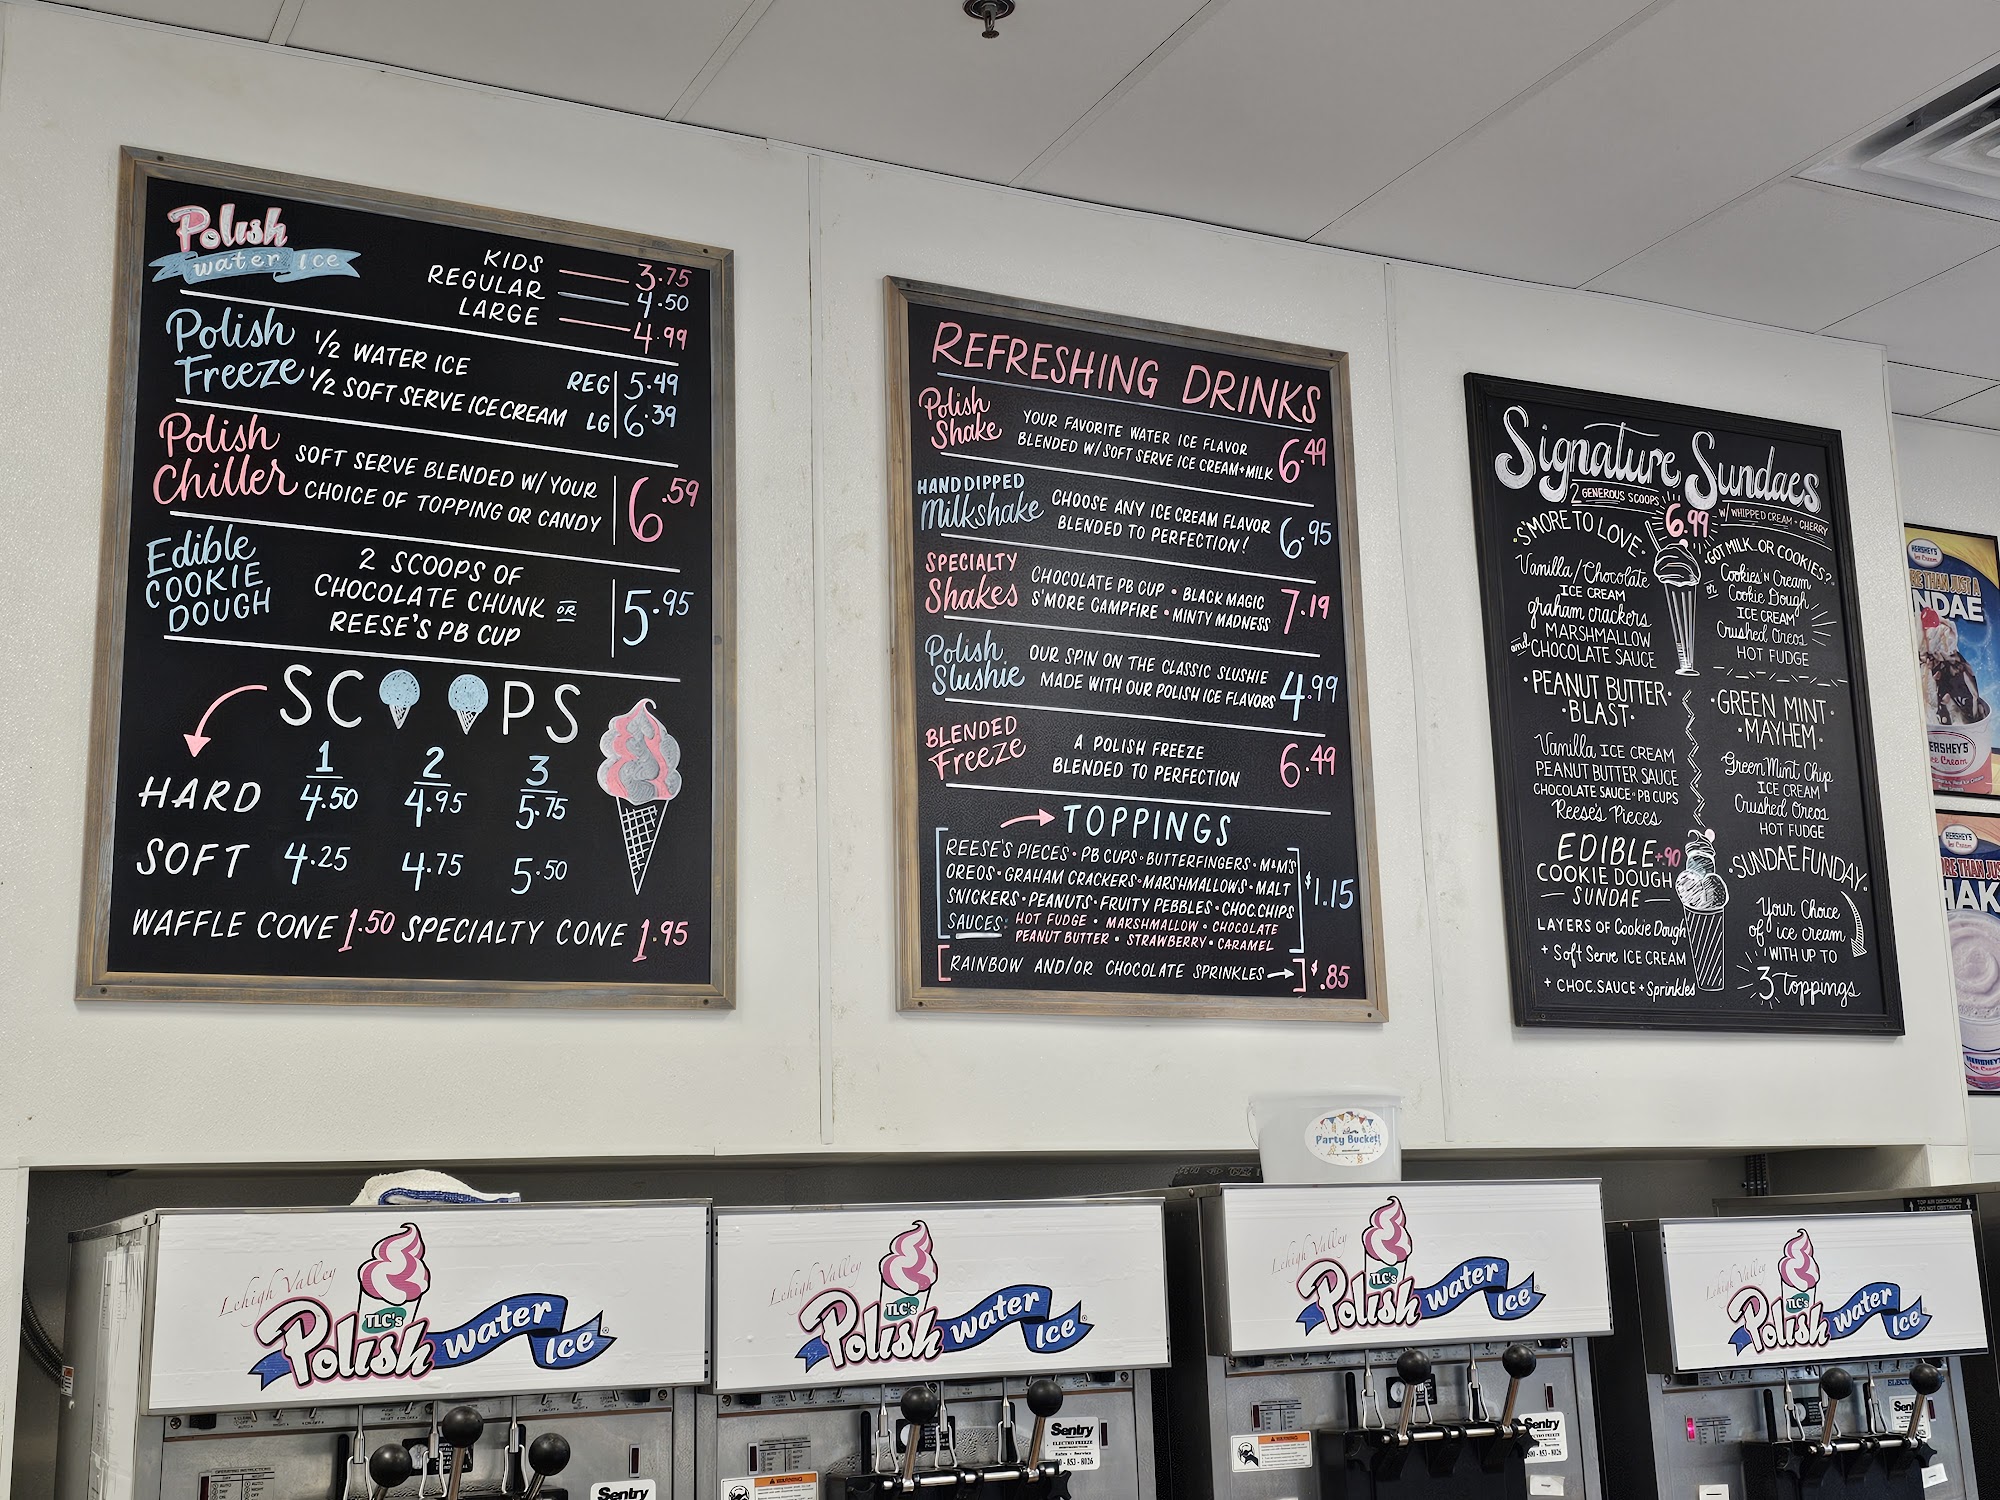 Polish
water ice
KIDS 3.75
REGULAR 4.50
LARGE 4.99
Polish
Freeze
1/2 WATER ICE
1/2 SOFT SERVE ICE CREAM
REG 5.49
LG 6.39
Polish
Chiller
SOFT SERVE BLENDED W/ YOUR
CHOICE OF TOPPING OR CANDY
6.59
Edible
COOKIE
DOUGH
2 SCOOPS OF
CHOCOLATE CHUNK OR
REESE'S PB CUP
5.95
SCOOPS
1 2 3
HARD 4.50 4.95 5.75
SOFT 4.25 4.75 5.50
WAFFLE CONE 1.50 SPECIALTY CONE 1.95
REFRESHING DRINKS
Polish
Shake
YOUR FAVORITE WATER ICE FLAVOR
BLENDED W/ SOFT SERVE ICE CREAM + MILK
6.49
HAND DIPPED
Milkshake
CHOOSE ANY ICE CREAM FLAVOR
BLENDED TO PERFECTION!
6.95
SPECIALTY
Shakes
CHOCOLATE PB CUP • BLACK MAGIC
S'MORE CAMPFIRE • MINTY MADNESS
7.19
Polish
Slushie
OUR SPIN ON THE CLASSIC SLUSHIE
MADE WITH OUR POLISH ICE FLAVORS
4.99
BLENDED
Freeze
A POLISH FREEZE
BLENDED TO PERFECTION
6.49
TOPPINGS
REESE'S PIECES • PB CUPS • BUTTERFINGERS • M&M'S
OREOS • GRAHAM CRACKERS • MARSHMALLOWS • MALT
SNICKERS • PEANUTS • FRUITY PEBBLES • CHOC.CHIPS
SAUCES: HOT FUDGE • MARSHMALLOW • CHOCOLATE
PEANUT BUTTER • STRAWBERRY • CARAMEL
$1.15
RAINBOW AND/OR CHOCOLATE SPRINKLES → $.85
Signature Sundaes
2 GENEROUS SCOOPS
6.99
W/ WHIPPED CREAM + CHERRY
•S'MORE TO LOVE•
Vanilla/Chocolate
ICE CREAM
graham crackers
MARSHMALLOW
and CHOCOLATE SAUCE
•PEANUT BUTTER•
•BLAST•
Vanilla ICE CREAM
PEANUT BUTTER SAUCE
CHOCOLATE SAUCE • PB CUPS
Reese's Pieces
EDIBLE +.90
COOKIE DOUGH
SUNDAE
LAYERS OF Cookie Dough
+ Soft Serve ICE CREAM
+ CHOC.SAUCE + Sprinkles
GOT MILK..OR COOKIES?
Cookies'n Cream
or Cookie Dough
ICE CREAM
Crushed Oreos
HOT FUDGE
•GREEN MINT•
•MAYHEM•
Green Mint Chip
ICE CREAM
Crushed Oreos
HOT FUDGE
•SUNDAE FUNDAY•
Your Choice
of ice cream
WITH UP TO
3 Toppings
HERSHEY'S
Ice Cream
RE THAN JUST A
NDAE
ERSHEY'S
ce Cream
HERSHEY'S
Ice Cream
RE THAN JUS
HAK
HERSHEY'
Party Bucket!
TOP AIR DISCHARGE
DO NOT OBSTRUCT
Lehigh Valley
TLC's
Polish water Ice
Lehigh Valley
TLC's
Polish water Ice
Lehigh Valley
TLC's
Polish water Ice
Lehigh Valley
TLC's
Polish water Ice
Sentry
Sentry
ELECTRO FREEZE
853 - 8026
WARNING
Sentry
800 - 853 - 8026
WARNING